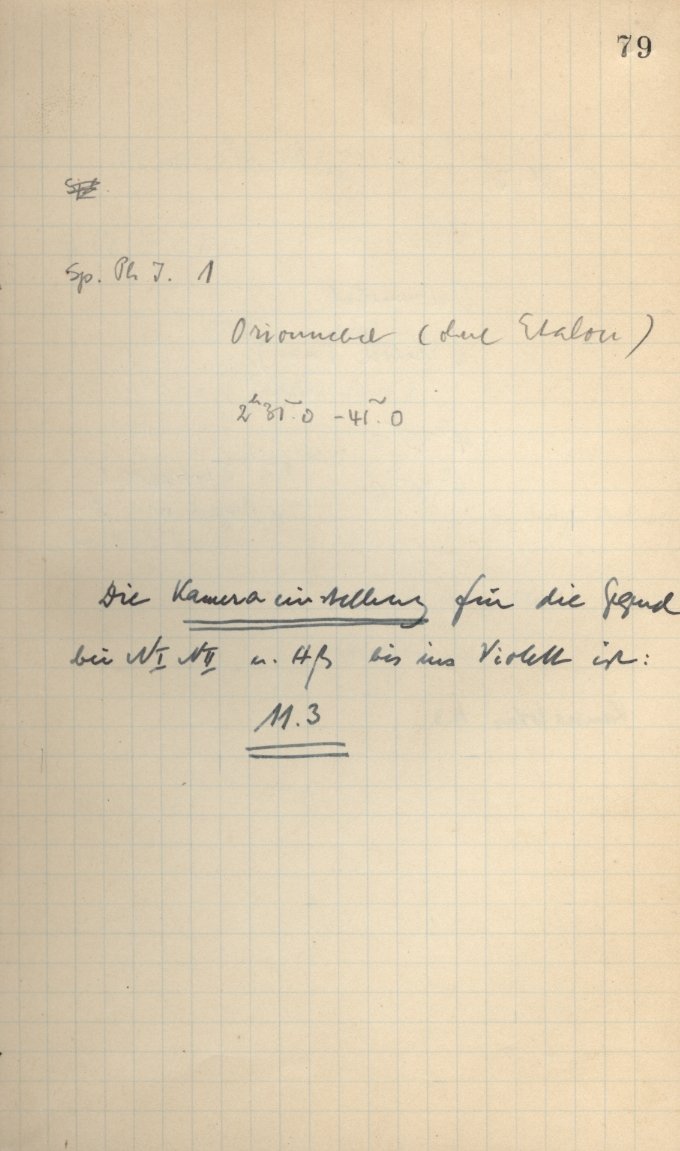 79
Sp. Ph I. 1
Orionnebel (ohne Etalon)
Die Kameraeinstellung für die Gegend
bei N_I N_II u. Hβ bis ins Violett ist:
11.3